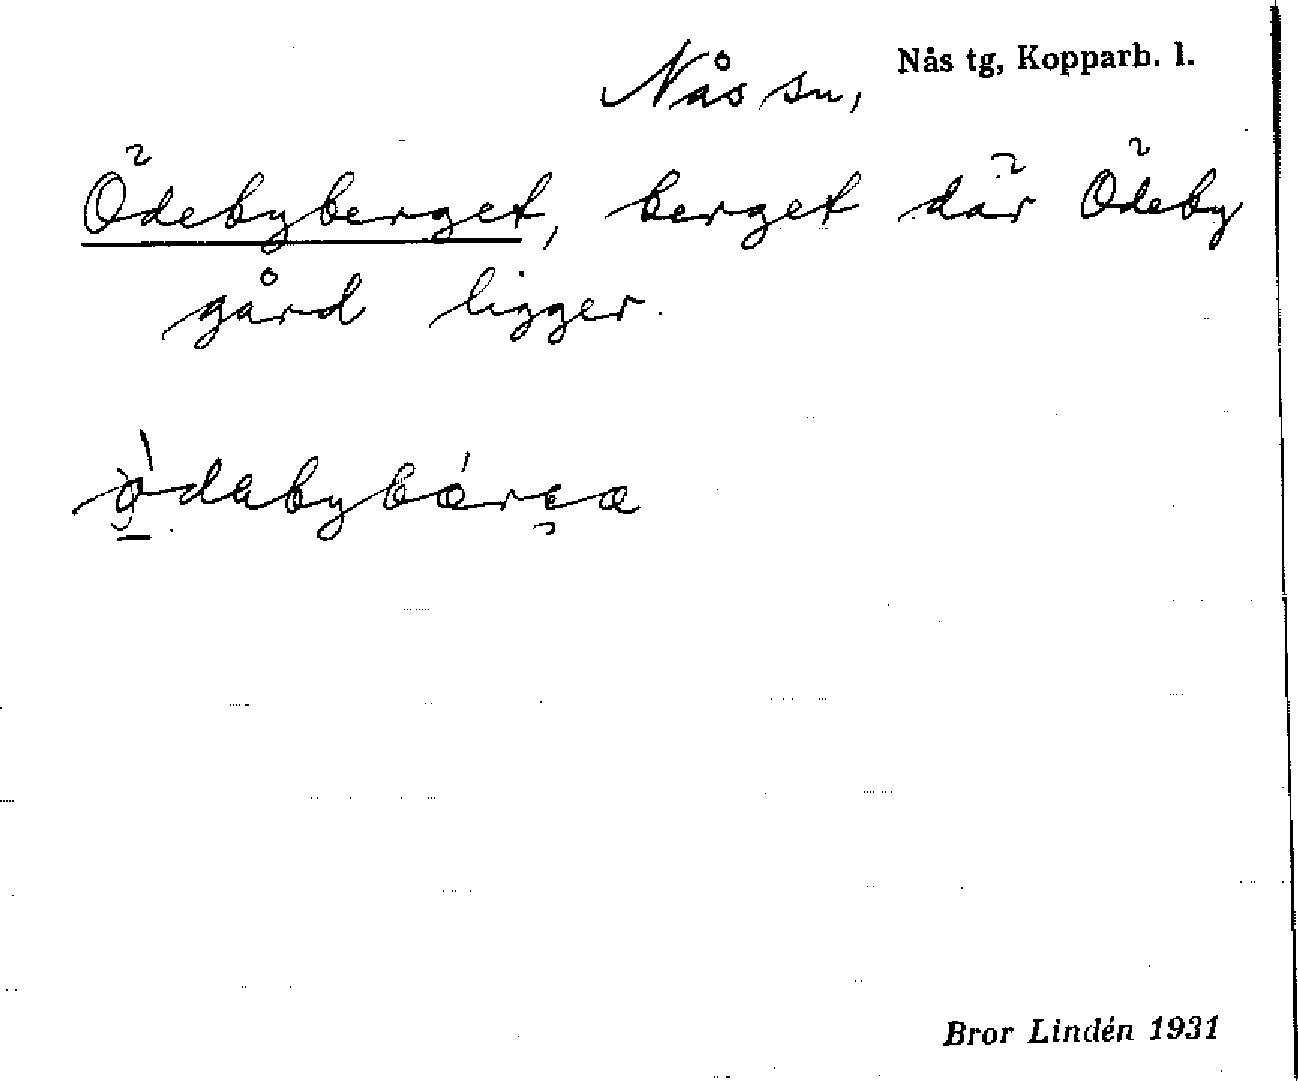 Nås sn, Nås tg, Kopparb. l.
Ödebyberget, berget där Ödeby
gård ligger.
Bror Lindén 1931